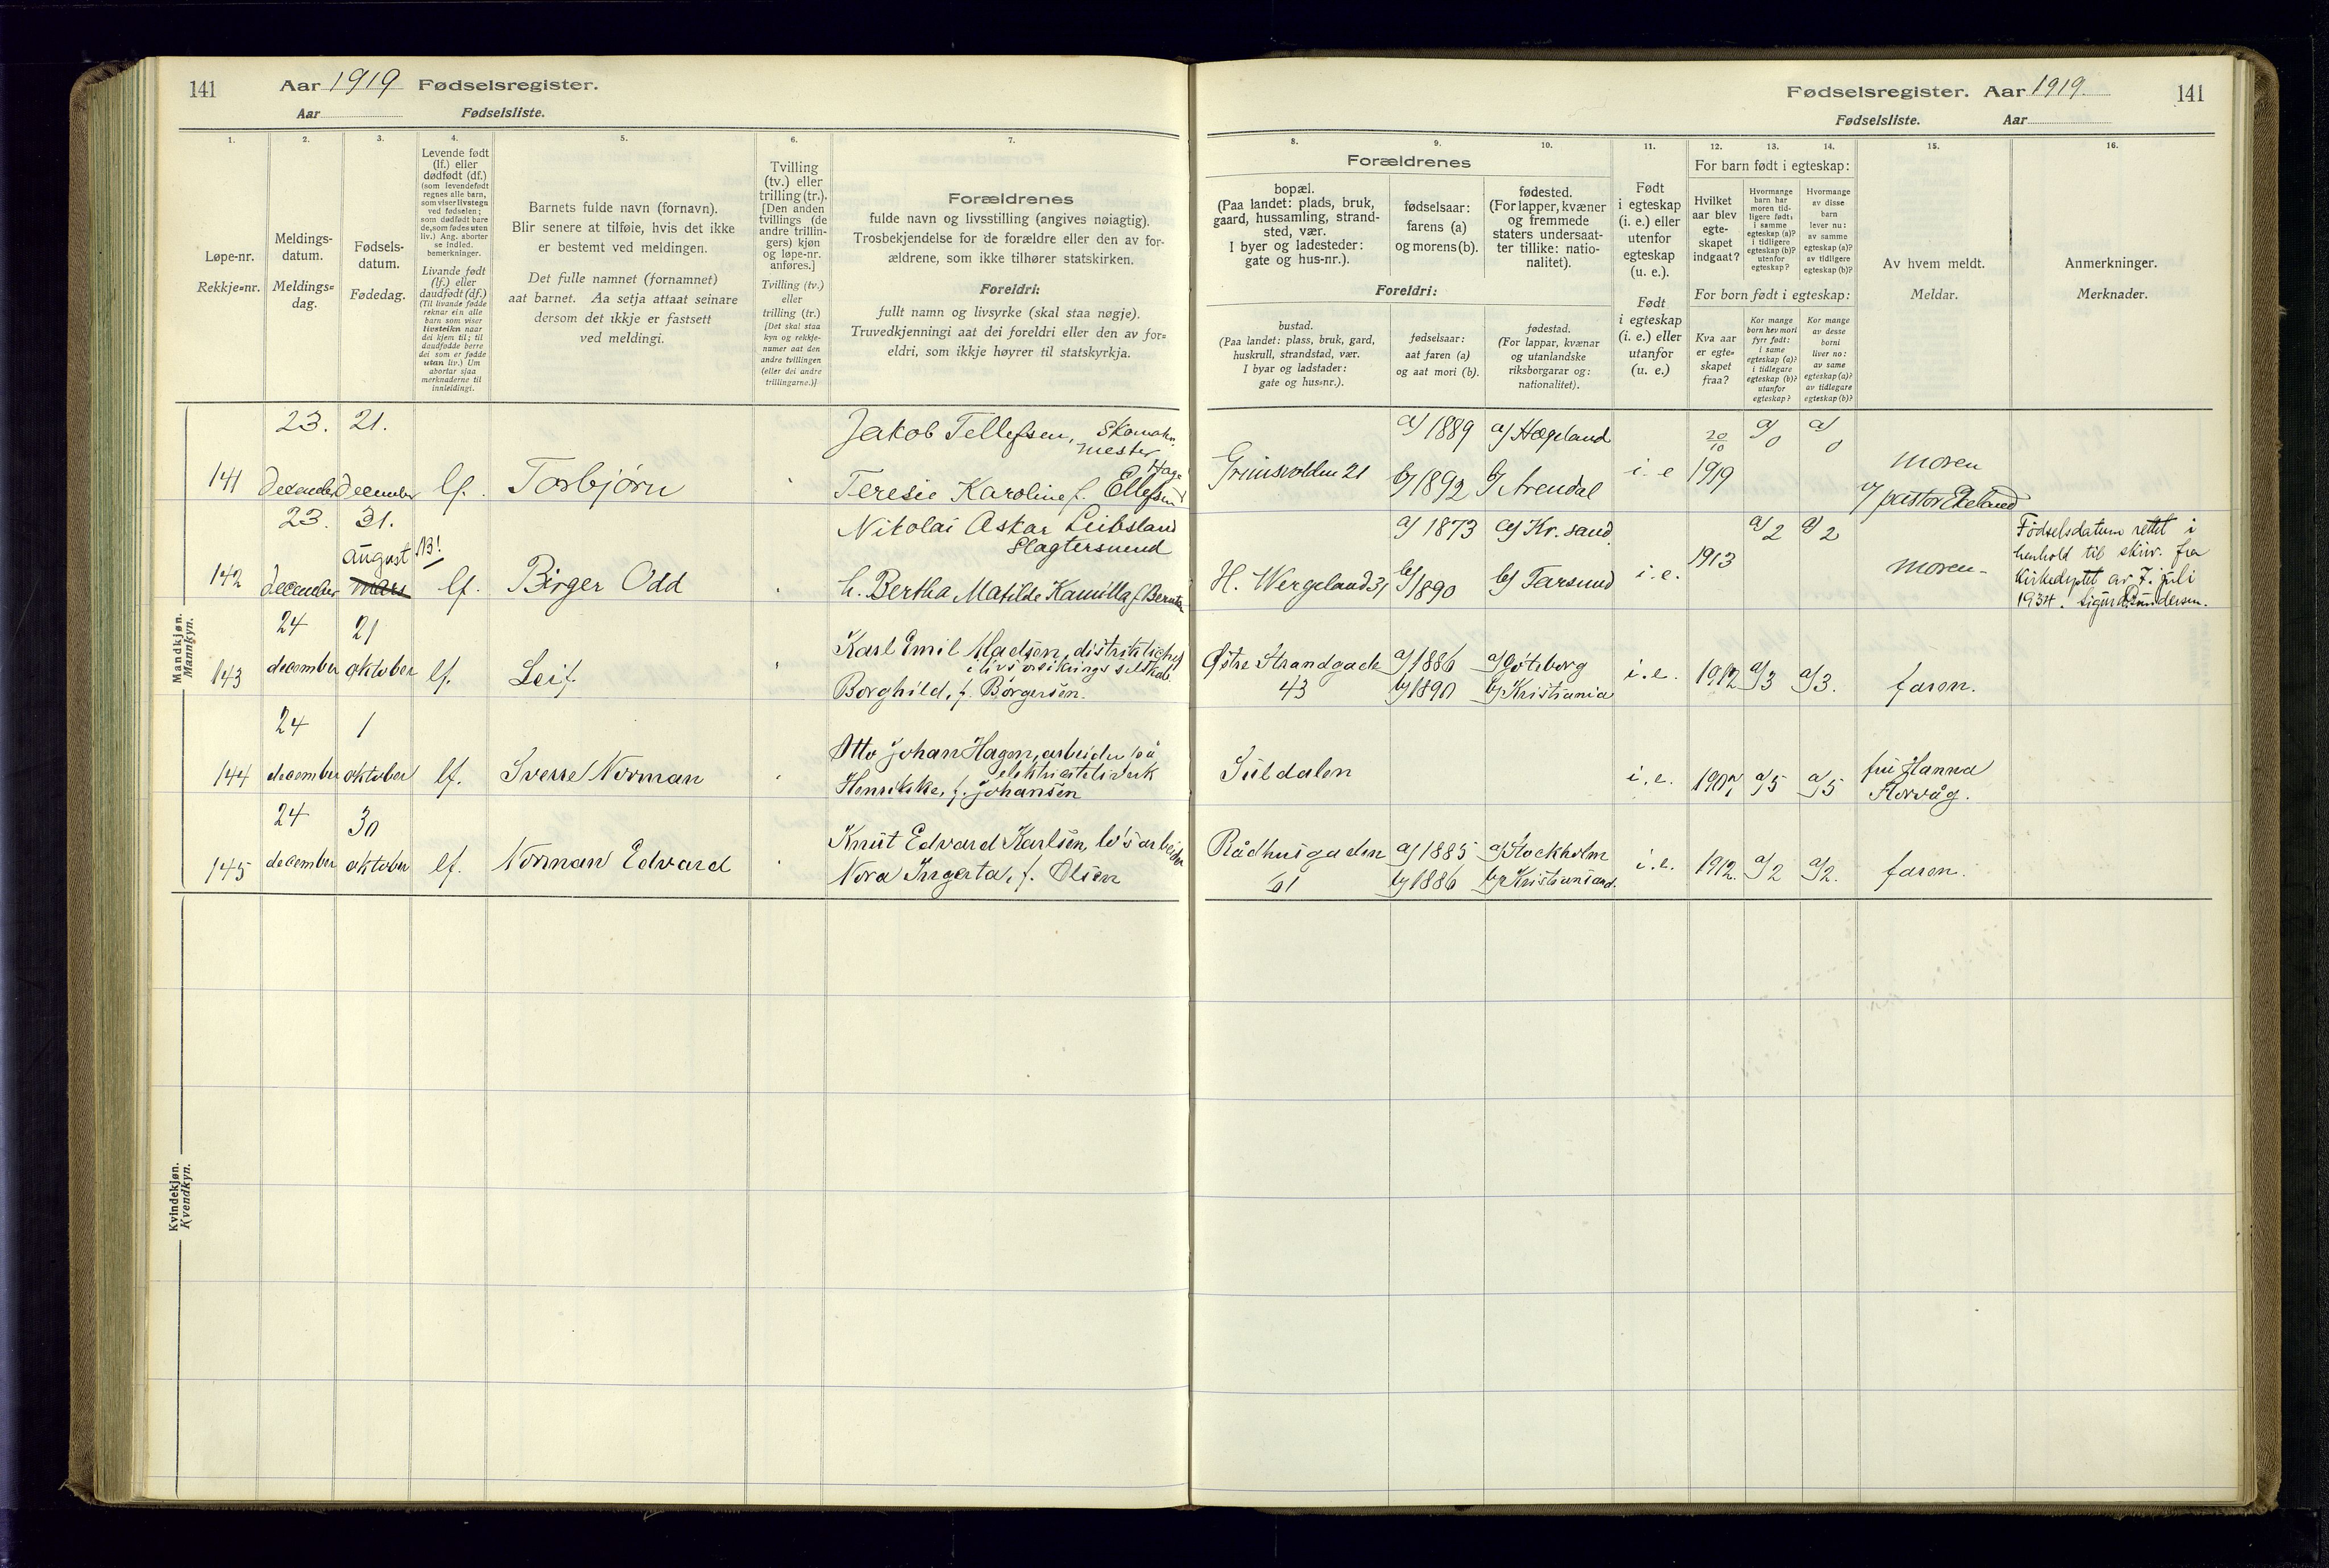 141 Aar 1919 Fødselsregister.
Aar Fødselsliste.
Fødselsregister. Aar 1919. 141
Fødselsliste. Aar
1. 2. 3. 4. 5. 6. 7.
Løpe-nr.
Rekkje=nr.
Meldings-
datum.
Meldings=
dag.
Fødsels-
datum.
Fødedag.
Levende født
(lf.) eller
dødfødt (df.)
(som levendefødt
regnes alle barn,
som viser livstegn
ved fødselen;
som dødfødt bare
de, som fødes uten
liv.) Ang. aborter
se indled.
bemerkninger.
Livande født
(lf.) eller
daudfødt (df.)
(Til livande fødde
reknar ein alle
barn som viser
livsteikn naar
dei kjem til; til
daudfødde berre
dei som er fødde
utan liv.) Um
abortar sjaa
merknaderne til
innleidingi.
Barnets fulde navn (fornavn).
Blir senere at tilføie, hvis det ikke
er bestemt ved meldingen.
Det fulle namnet (fornamnet)
aat barnet. Aa setja attaat seinare
dersom det ikkje er fastsett
ved meldingi.
Tvilling
(tv.) eller
trilling (tr.).
[Den anden
tvillings (de
andre trillin-
gers) kjøn
og løpe-nr.
anføres.]
Tvilling (tv.)
eller
trilling (tr.)
[Det skal staa
kyn og rekkje-
numer aat den
andre tvillingen
(eller dei andre
trillingarne.)]
Forældrenes
fulde navn og livsstilling (angives nøiagtig).
Trosbekjendelse for de forældre eller den av for-
ældrene, som ikke tilhører statskirken.
Foreldri:
fullt namn og livsyrke (skal staa nøgje).
Truvedkjenningi aat dei foreldri eller den av for=
eldri, som ikkje høyrer til statskyrkja.
8. 9. 10. 11. 12. 13. 14. 15. 16.
Forældrenes
bopæl.
(Paa landet: plads, bruk,
gaard, hussamling, strand-
sted, vær.
I byer og ladesteder:
gate og hus-nr.).
fødselsaar:
farens (a)
og morens (b).
fødested.
(For lapper, kvæner
og fremmede
staters undersaat-
ter tillike: natio-
nalitet).
Foreldri:
bustad.
(Paa landet: plass, bruk, gard,
huskrull, strandstad, vær.
I byar og ladstader:
gate og hus=nr.).
fødselsaar:
aat faren (a)
og aat mori (b).
fødestad.
(For lappar, kvænar
og utanlandske
riksborgarar og:
nationalitet).
Født
i egteskap
(i. e.) eller
utenfor
egteskap
(u. e.).
Født
i egteskap
(i. e.) eller
utanfor
(u. e.)
For barn født i egteskap:
Hvilket
aar blev
egte-
skapet
indgaat?
Hvormange
barn har
moren tid-
ligere født:
i samme
egteskap (a)?
i tidligere
egteskap (b)?
utenfor
egteskap?
Hvormange
av disse
barn
lever nu:
av samme
egteskap (a)?
av tidligere
egteskap (b)?
For born født i egteskap:
Kva aar
er egte=
skapet
fraa?
Kor mange
born hev mori
fyrr født:
i same
egteskap (a)?
i tidlegare
egteskap (b)?
utanfor
egteskap?
Kor mange
av desse
borni
liver no:
av same
egteskap (a)?
av tidlegare
egteskap (b)?
Av hvem meldt.
Meldar.
Anmerkninger.
Merknader.
Mandkjøn.
Mannkyn.
23. 21.
141 december december lf. Torbjørn
Jakob Tellefsen, Skomakermester
Teresie Karoline f. Ellefsen
Grimsvolden 21
a/ 1889 a/ Hægeland
b/ 1892 b/ Arendal
i. e 20/10 1919 a/0 a/0
moren
v/ pastor Ekeland
23. 31.
august 13!
142 december mars lf. Birger Odd
Nikolai Oskar Leibsland
Slagtersvend
h. Bertha Matilde Kamilla f. Berntsen
H. Wergeland 31
a/ 1873 a/ Kr. sand
b/ 1890 b/ Farsund
i. e. 1913 a/2 a/2
moren-
Fødselsdatum rettet i
henhold til skriv. fra
Kirkedeptet av 7. juli
1934. Sigurd Gundersen.
24 21
143 december oktober lf. Leif
Karl Emil Madsen, distriktschef
i livsforsikringsselskab
Borghild, f. Børgersen.
Østre Strandgade
43
a/ 1886 a/ Göteborg
b/ 1890 b/ Kristiania
i. e. 1912 a/3 a/3.
faren.
24 1
144 december oktober lf. Sverre Norman
Otto Johan Hagen, arbeider på
elektricitetsverk
Henrikke, f. Johansen
Suldalen
i. e. 1907 a/5 a/5
fru Hanna
Horvåg.
24 30
145 december oktober lf. Norman Edvard
Knut Edvard Karlsen, løsarbeider
Nora Ingerta, f. Olsen
Rådhusgaden
61
a/ 1885 a/ Stockholm
b/ 1886 b/ Kristiansand.
i. e. 1912. a/2 a/2.
faren.
Kvindekjøn.
Kvendkyn.